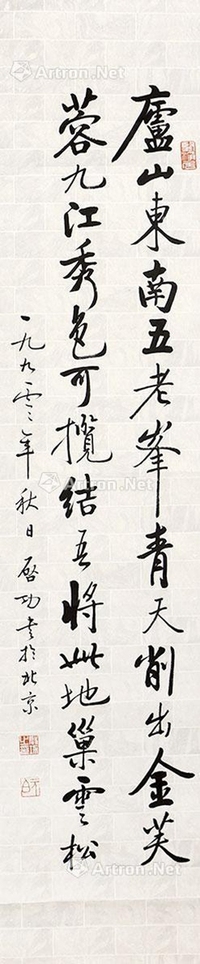 廬山東南五老峯青天削出金芙
蓉九江秀色可攬結吾將此地巢雲松
一九九零年秋日啓功书於北京
Artron.Net
Artron.Net